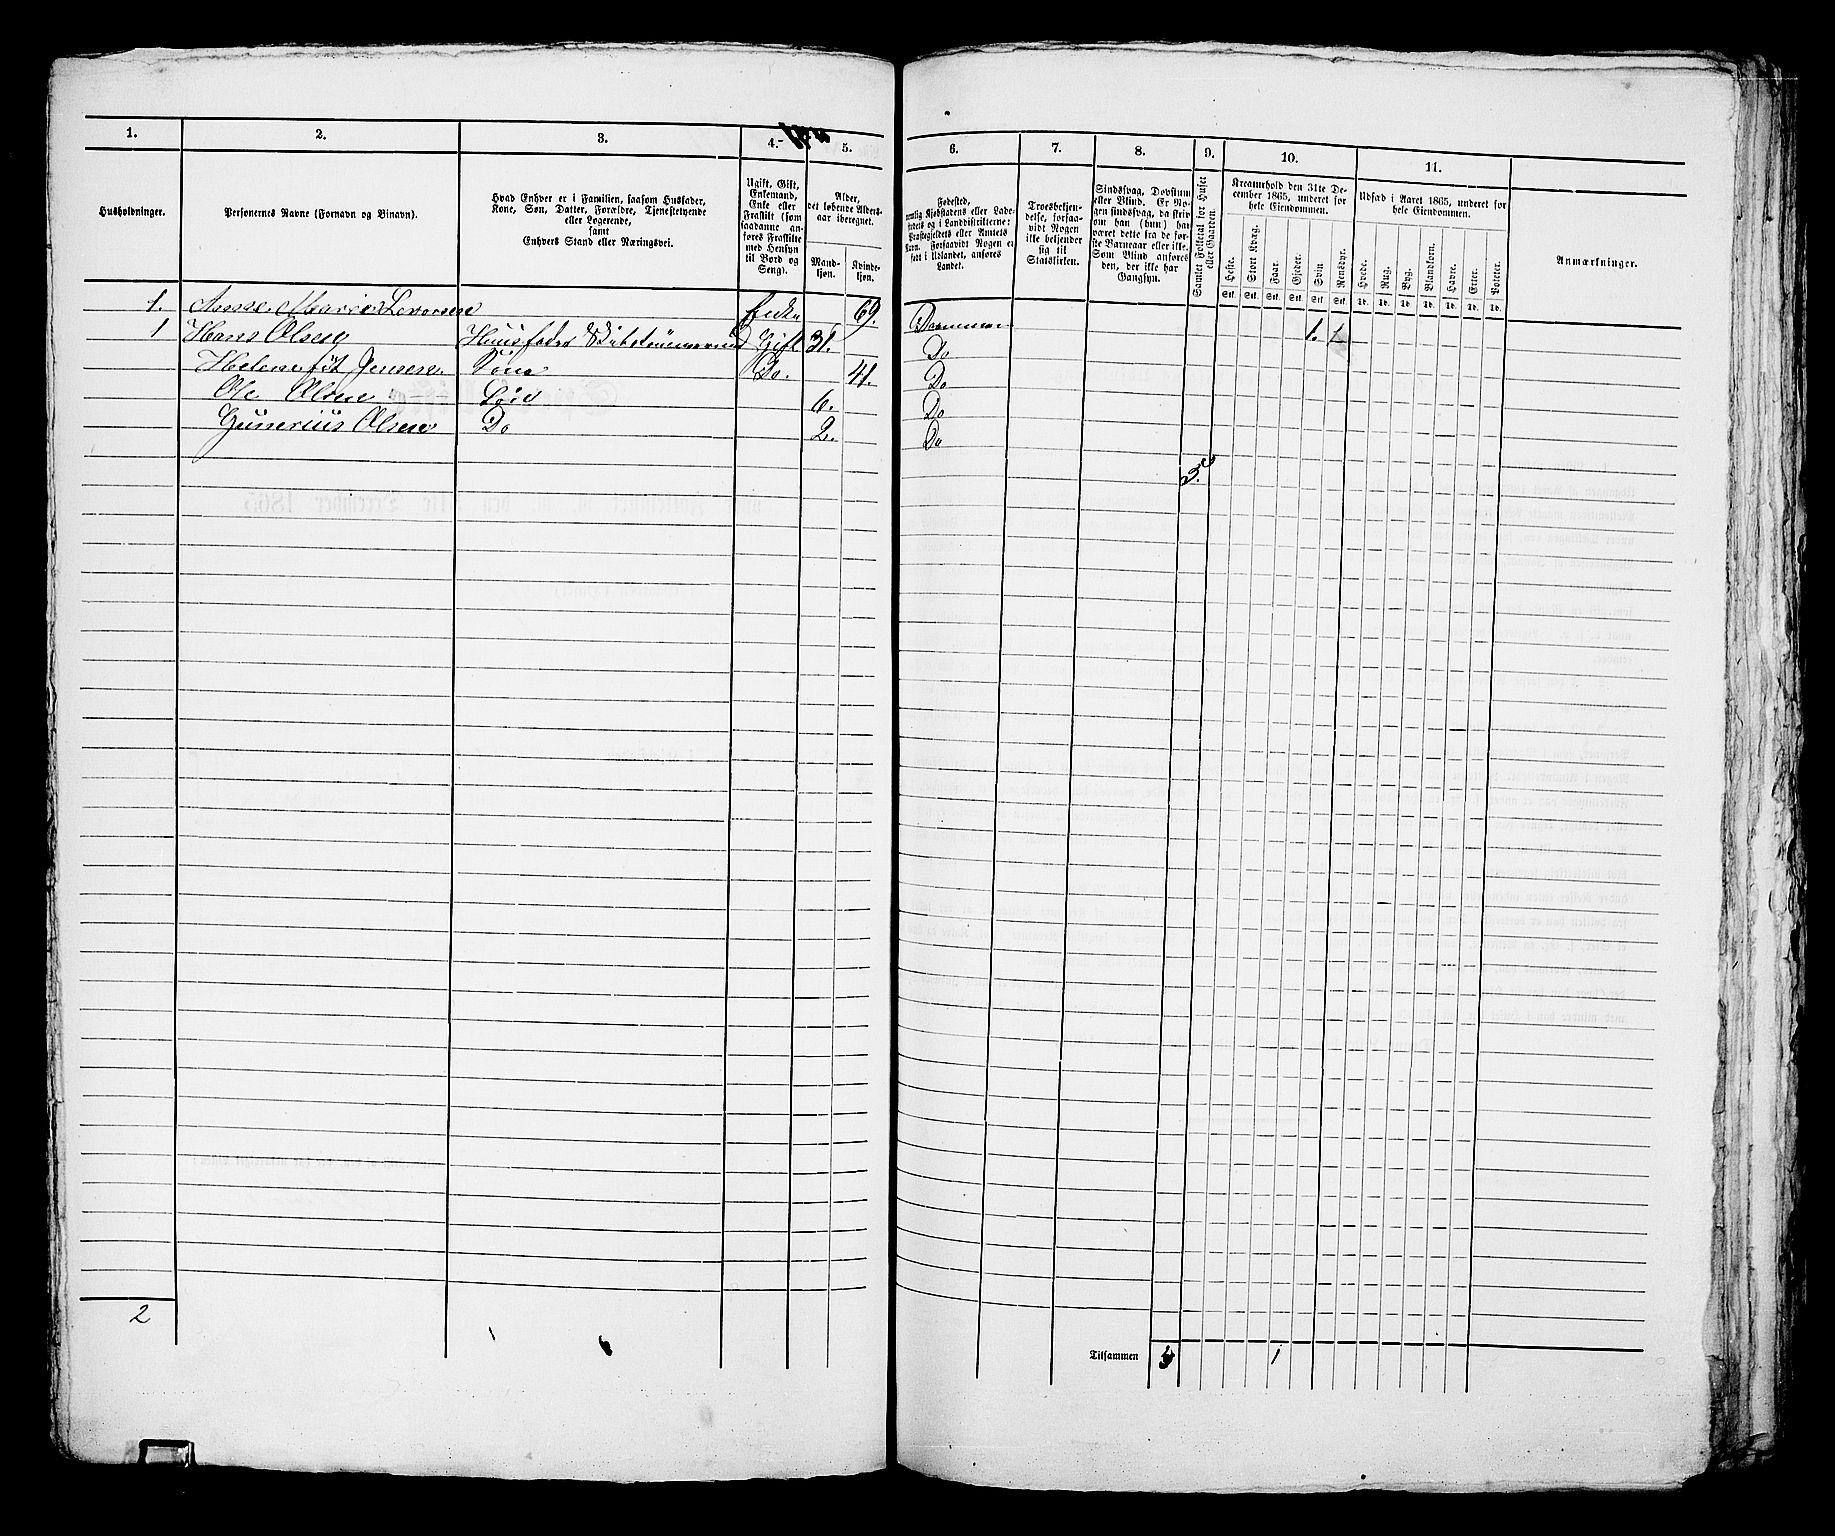 1. 2. 3. 4. 5.
Husholdninger.
Personernes Navne (Fornavn og Tilnavn).
Hvad Enhver er i Familien, saasom Husfader,
Kone, Søn, Datter, Forældre, Tjenestetyende
eller Logerende,
samt
Enhvers Stand eller Næringsvei.
Ugift, Gift,
Enkemand,
Enke eller
Fraskilt (som
saadanne an-
føres Fraskilte
med Hensyn
til Bord og
Seng).
Alder,
det løbende Alders-
aar iberegnet.
Mand-
kjøn.
Kvinde-
kjøn.
1. Anne Marie Levorsen Enke 69.
1 Hans Olsen Huusfader Gift 31.
Helene Jensen Kone Do. 41.
Ole Olsen Søn 6.
Gunerius Olsen Do 2.
2
6. 7. 8. 9. 10. 11.
Fødested,
nemlig Kjøbstadens eller Lade-
stedets og i Landdistrikterne:
Præstegjeldets eller Amtets
Navn. Forsaavidt Nogen er
født i Udlandet, anføres
Landet.
Troesbekjen-
delse, forsaa-
vidt Nogen
ikke bekjender
sig til
Statskirken.
Sindssvag, Døvstum
eller Blind. Er No-
gen sindssvag, da skriv
om han (hun) har
været dette fra de før-
ste Barneaar eller ikke.
Som Blind anføres
den, der ikke har
Gangsyn.
Samlet Folketal for Huset
eller Gaarden.
Kreaturhold den 31te De-
cember 1865, underet for
hele Eiendommen.
Heste. Stort Kvæg. Faar. Gjeder. Svin Rensdyr.
Stk. Stk. Stk. Stk. Stk. Stk.
Udsæd i Aaret 1865, underet for
hele Eiendommen.
Hvede. Rug. Byg. Blandkorn. Havre. Erter. Poteter.
Td. Td. Td. Td. Td. Td. Td.
Anmærkninger.
Drammen
Do 1.
Do
Do
Do
5.
Tilsammen 5 1